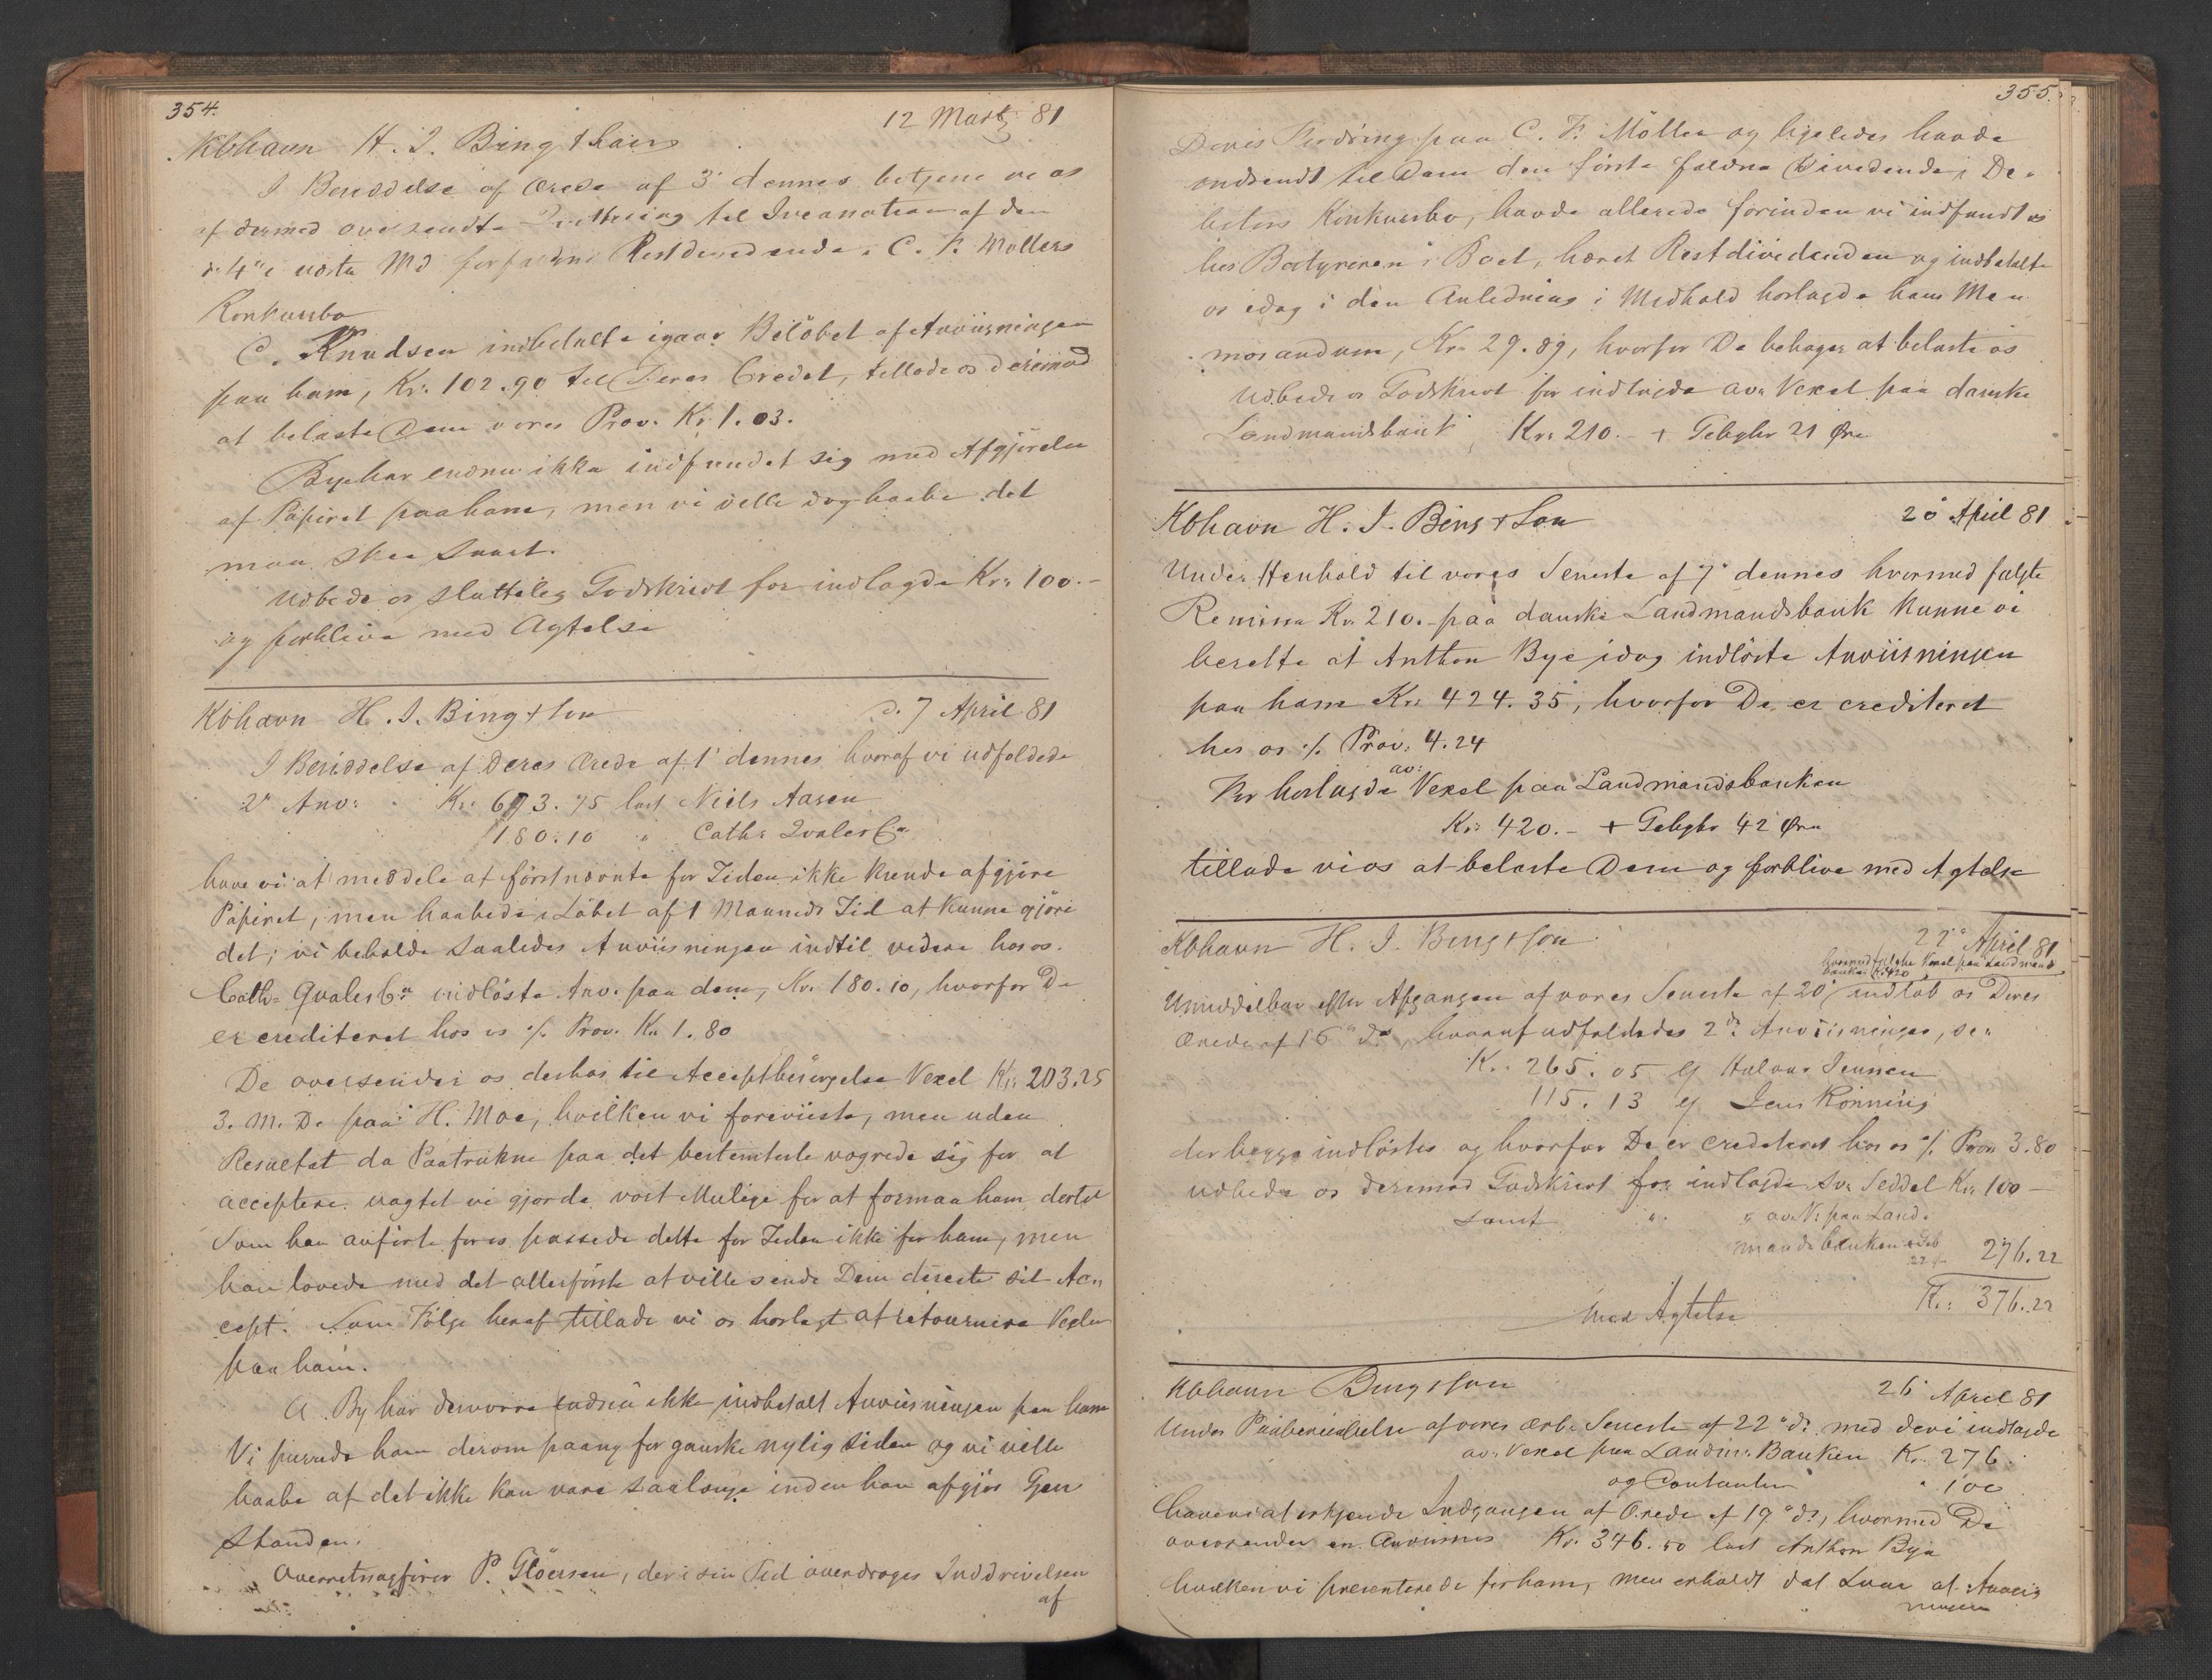 354.
12 Marts 81
Kbhavn H. I. Bing &
I Besiddelse af Ærede af 3' dennes betjene vi os
af dermed oversendte til af den
d. 4' i næste Md forfaldne Restdividende i C. F. Möllers
Konkursbo
C. Knudsen indbetalte igaar Belöbet af Anviisningen
paa ham, Kr: 102.90 til Deres Credit, tillade os derimod
at belaste Dem vores Prov. Kr 1.03.
Bye har endnu ikke indfundet sig med Afgjörelse
af Papiret paa ham, men vi ville dog haabe det
maa skee snart.
Udbede os sluttelig Godskrivt for indlagde Kr: 100.-
og forblive med Agtelse
Kbhavn H. I. Bing & Son
d. 7 April 81
I Besiddelse af Deres Ærede af 1' dennes hvoraf vi udfoldede
2de Anv: Kr: 673.75 last Niels Aasen
180.10 " Cath: Qvales Co
have vi at meddele at förstnævnte for Tiden ikke kunde afgjöre
Papiret, men haabede i Löbet af 1 Maaneds Tid at kunne gjöre
det; vi beholde saaledes Anviisningen indtil videre hos os.
Cath: Qvales Co indlöste Anv. paa dem, Kr. 180.10, hvorfor De
er crediteret hos os ./. Prov. Kr 1.80
De oversender os derhos til Acceptbesörgelse Vexel Kr: 203.25
3. M. D. paa H. Moe, hvilken vi foreviiste, men uden
Resultat da Paatrukne paa det bestemteste vægrede sig for at
acceptere uagtet vi gjorde vort Mulige for at formaa ham dertil
Som han anförte for os passede dette for Tiden ikke for ham, men
han lovede med det allerförste at ville sende Dem directe sit Ac-
cept. Som Fölge heraf tillade vi os hoslagt at retournere Vexlen
paa ham.
A. By har desværre endnu ikke indbetalt Anviisningen paa ham
Vi purrede ham derom paany for ganske nylig siden og vi ville
haabe at det ikke kan vare saalænge inden han afgjör Gjen
standen.
Overretssagförer P. Glöersen, der i sin Tid overdroges Inddrivelsen
af
355.
Deres Fordring paa C. F. Möller og ligeledes havde
indsendt til Dem den förste faldne Dividende i De-
bitors Konkursbo, havde allerede förinden vi indfandt os
hos Bestyreren i Boet, hævet Restdividenden og indbetalte
os idag i den Anledning i Medhold hoslagde hans Me-
morandum, Kr. 29.89, hvorfor De behager at belaste os
Udbede os Godskrivt for indlagde av. Vexel paa danske
Landmandsbank Kr: 210.- + Gebyhr 21 Øre
Kbhavn H. I. Bing & Son
20 April 81
Under Henhold til vores Seneste af 7' dennes hvormed fulgte
Remisse Kr. 210.- paa danske Landmandsbank kunne vi
berette at Anthon Bye idag indlöste Anviisningen
paa ham Kr: 424.35, hvorfor De er crediteret
hos os ./. Prov: 4.24
For hoslagde av: Vexel paa Landmandsbanken
Kr: 420.- + Gebyhr 42 Øre
tillade vi os at belaste Dem og forblive med Agtelse
Kbhavn H. I. Bing & Son
22' April 81
hvormed fulgte Vexel paa Landmands
banken Kr 420
Umiddelbar efter Afgangen af vores Seneste af 20' indlöb os Deres
Ærede af 16' ds, hvoraf udfoldedes 2de Anviisninger, se:
Kr. 265.05 Halvor Jensen
115.13 Jens Rönning
der begge indlöstes og hvorfor De er crediteret hos os ./. Prov 3.80
udbede os derimod Godskrivt for indlagde Sv: Seddel Kr: 100 -
samt " " av. V: paa Land-
mandsbanken + Geb 276.22
Kr: 376.22
Med Agtelse
Kbhavn Bing & Son
26 April 81
Under Paaberaabelse af vores ærb. Seneste af 22' ds med deri indlagde
av. Vexel paa Landm: Banken Kr. 276.
og Contanter " 100
have vi at erkjende Indgangen af Ærede af 19' ds, hvormed De
oversender en Anviisning Kr. 346.50 last Anthon Bye
hvilken vi presenterede for ham, men erholdt det Svar at Anviis
ningen